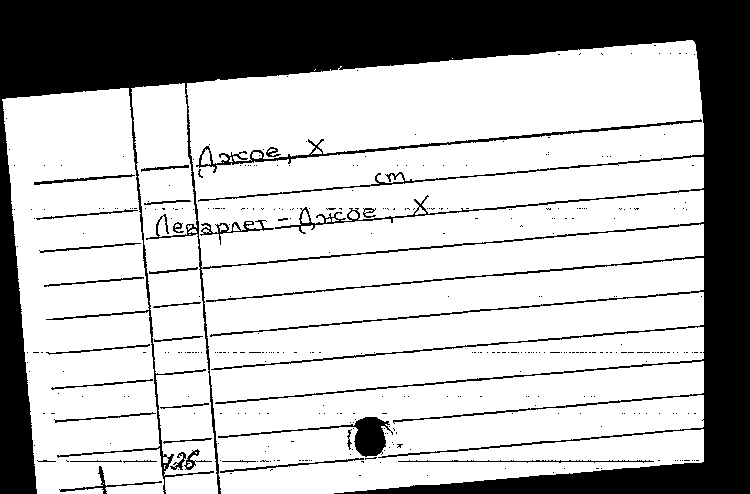 Джое, Х
ст.
Леварлет - Джое, Х
726